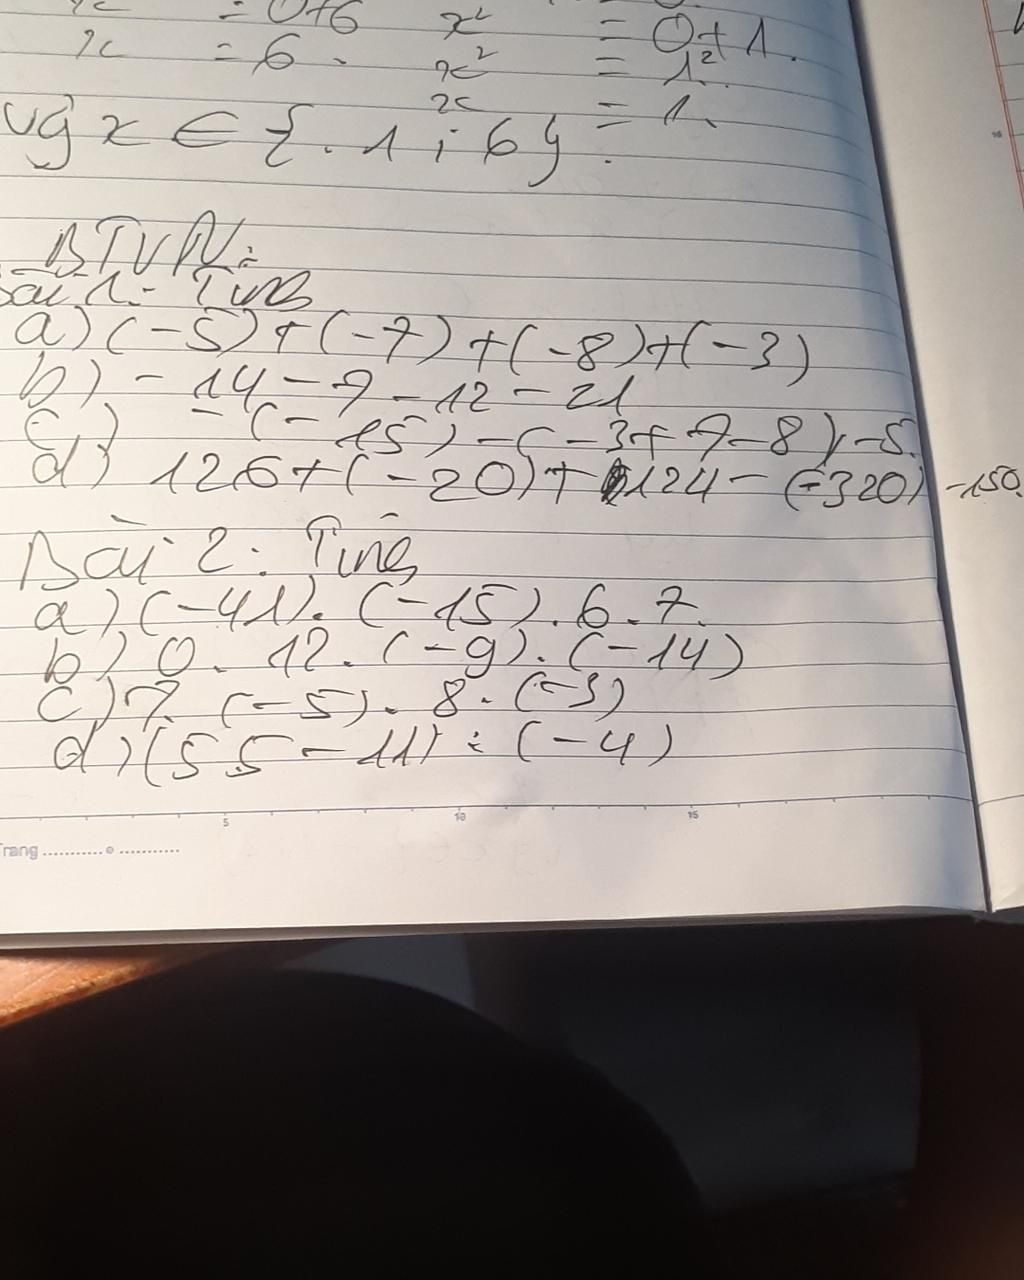 = 0+6 x² = 0+1.
x = 6. x² = 1².
x = 1.
vậy x ∈ {.1; 6}.
BTVN:
Bài 1: Tính
a) (-5)+(-7)+(-8)+(-3)
b) -14-7-12-21
c) -(-15)-(-3+7-8)-5.
d) 126+(-20)+124-(-320)-150.
Bài 2: Tính
a) (-41).(-15).6.7.
b) 0.12.(-9).(-14)
c) 7.(-5).8.(-3)
d) (55-11):(-4)
5 10 15
Trang